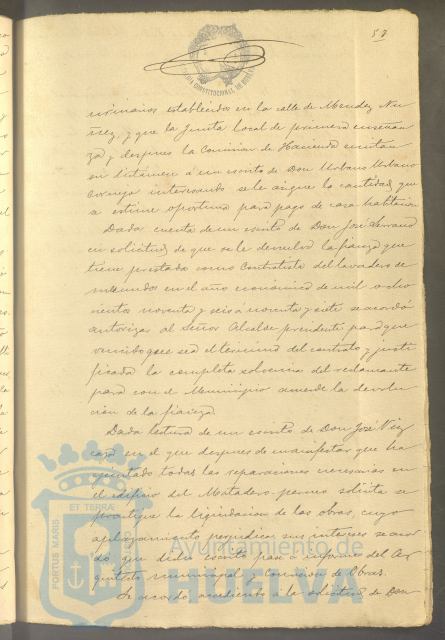 57
urinarios establecidos en la calle de Mendez Nu-
ñez, y que la Junta Local de primera enseñan
za y despues la Comision de Hacienda emitan
su dictamen á un escrito de Don Urbano Urbano
Cornejo interesando se le asigne la cantidad que
se estime oportuna para pago de casa habitacion
Dada cuenta de un escrito de Don José Serrano
en solicitud de que se le devuelva la fianza que
tiene prestada como Contratista del lavadero de
menudos en el año economico de mil ocho
cientos noventa y seis á noventa y siete se acordó
autorizar al Señor Alcalde presidente para que
vencido que sea el termino del contrato y justi
ficada la completa solvencia del reclamante
para con el Municipio acuerde la devolu
cion de la fianza.
Dada lectura de un escrito de Don José Viz
caya en el que despues de manifestar que ha
ejecutado todas las reparaciones necesarias en
el edificio del Matadero solicita se
practique la liquidacion de las obras, cuyo
aplazamiento perjudica sus intereses se acor
dó que dicho escrito pase á informe del Ar
quitecto municipal y Comision de Obras.
Se acordó accediendo á la solicitud de Don
PORTUS MARIS
ET TERRÆ
Ayuntamiento de
HUELVA